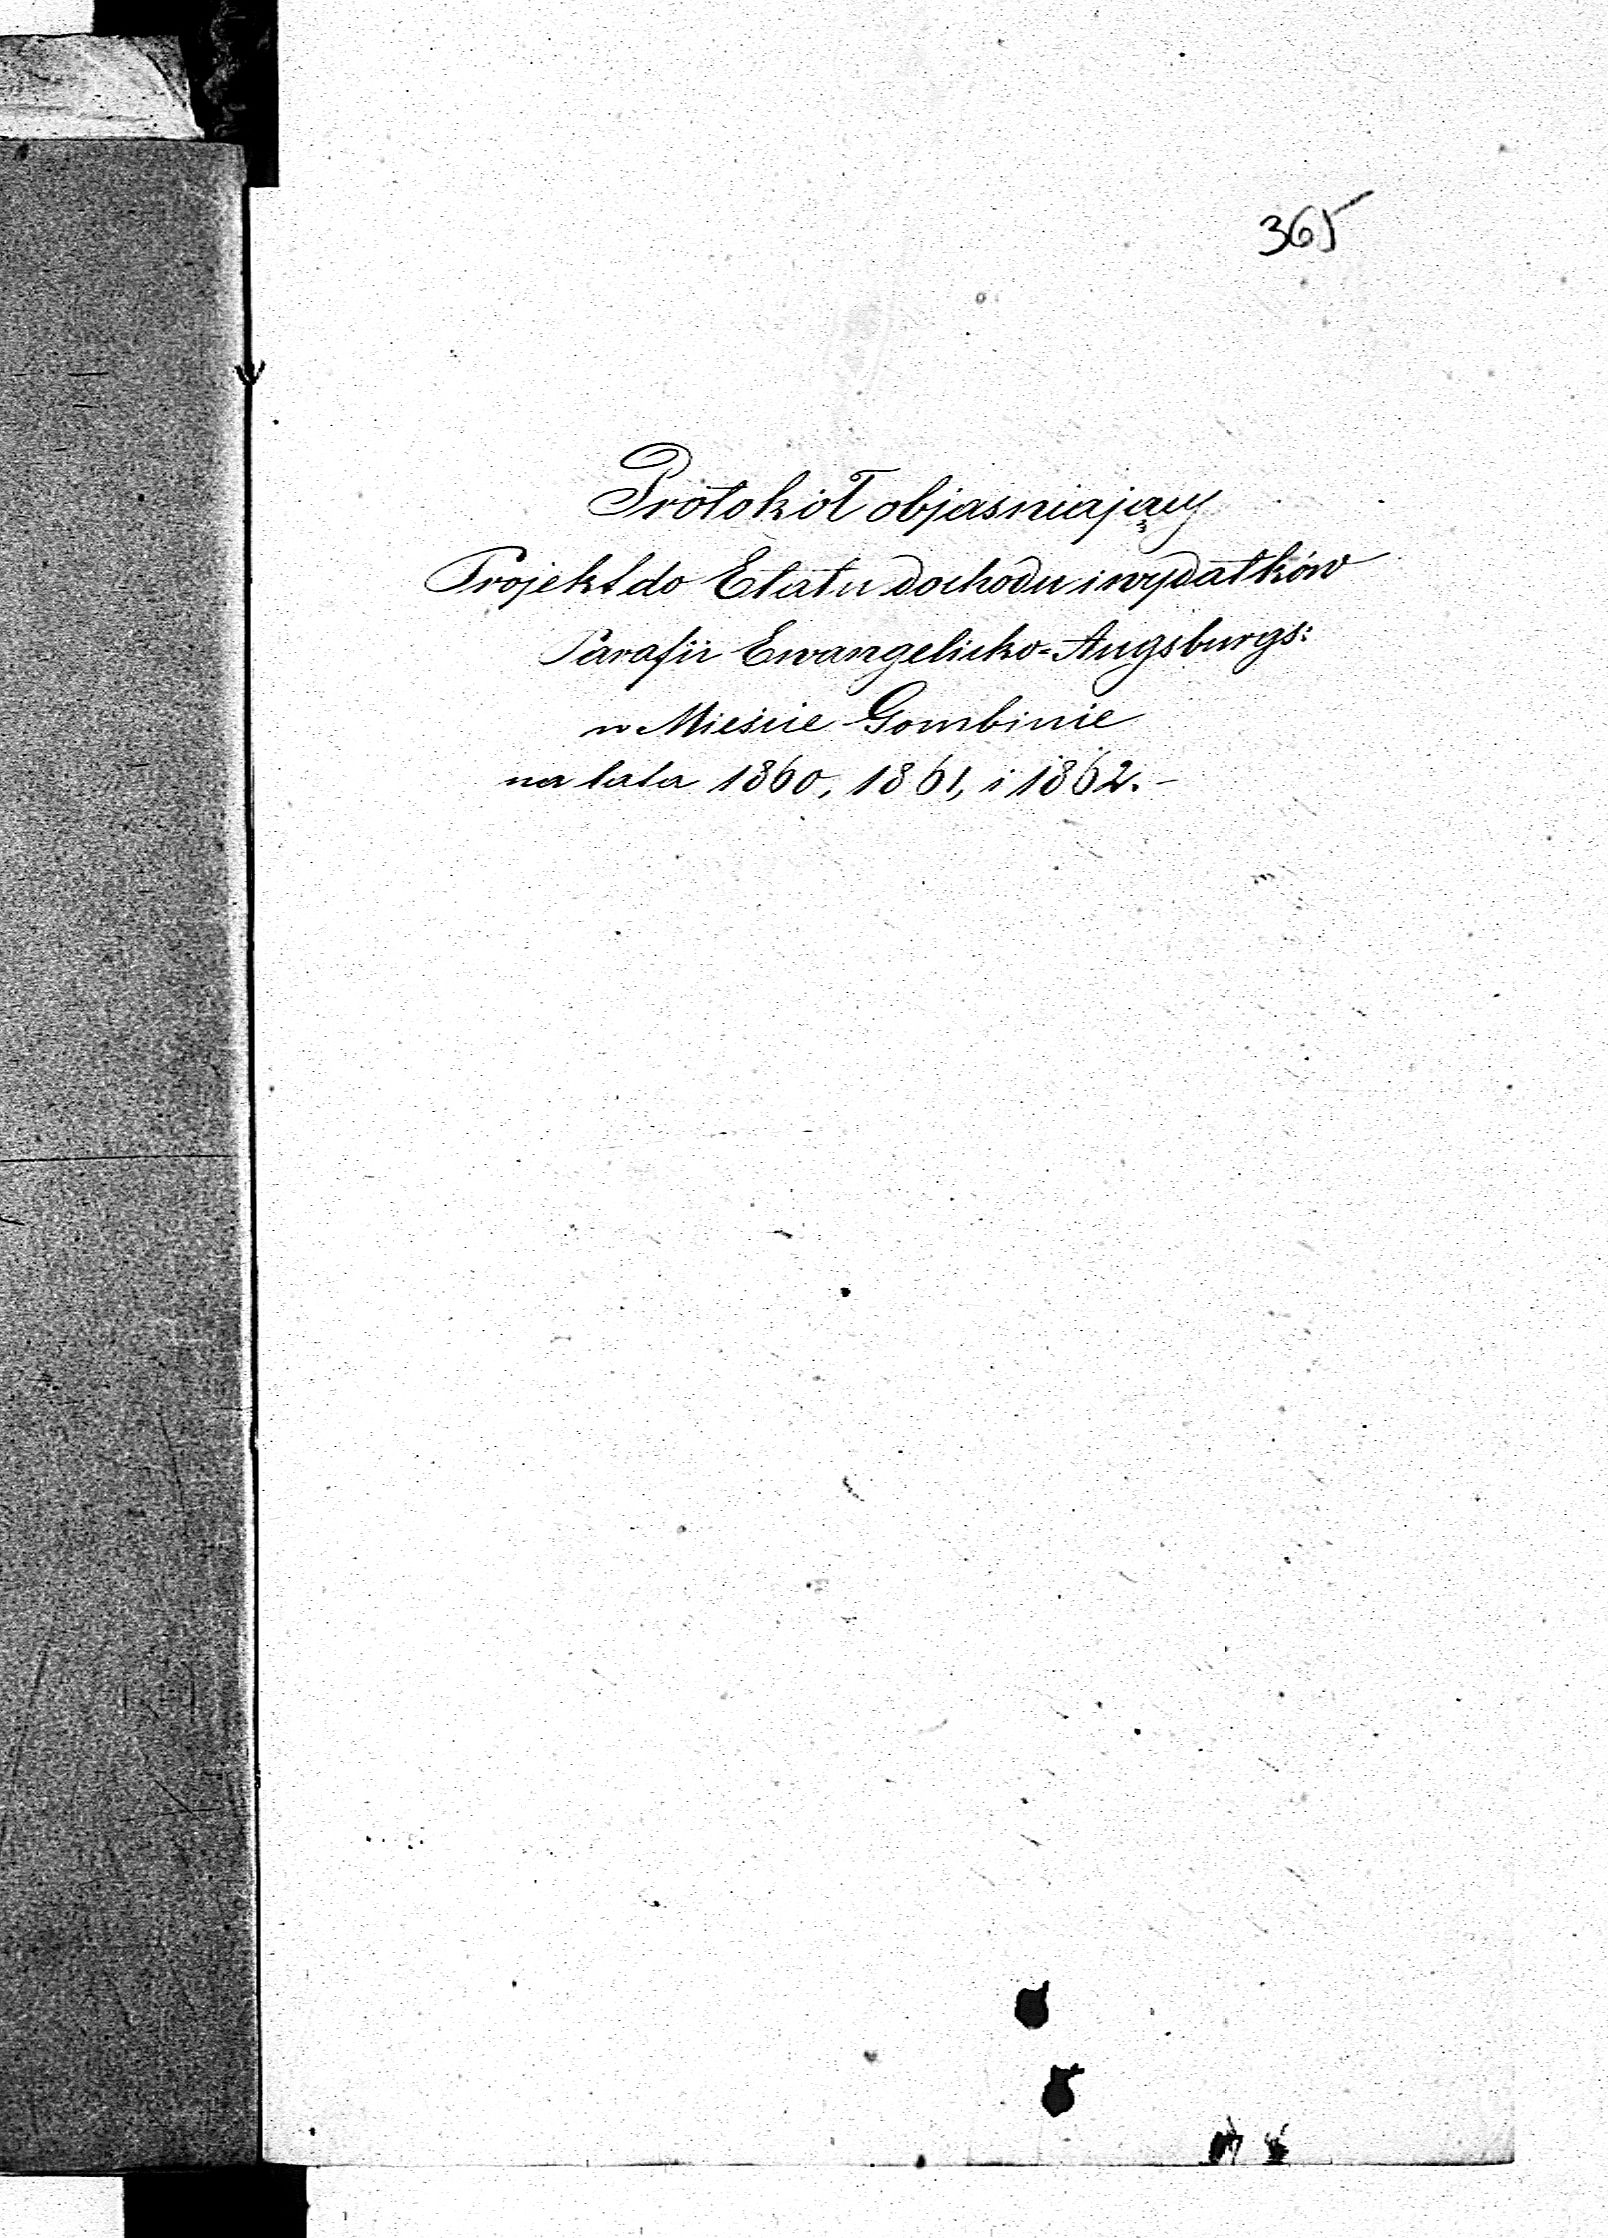 365
Protokół objasniający
Projekt do Etatu dochodu i wydatków
Parafii Ewangelicko-Augsburgs:
w Mieście Gombinie
na lata 1860, 1861, i 1862.-